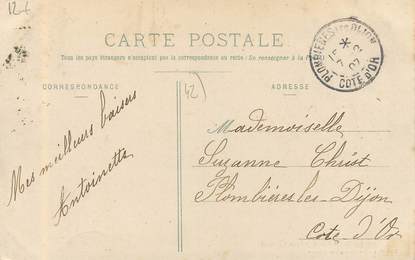 12-6
CARTE POSTALE
Tous les pays étrangers n'acceptent pas la correspondance au recto (Se renseigner à la
CORRESPONDANCE
ADRESSE
PLOMBIERES LES DIJON
COTE D'OR
42
Mes meilleurs baisers
Antoinette
Mademoiselle
Suzanne Christ
Plombières les Dijon
Cote d'Or